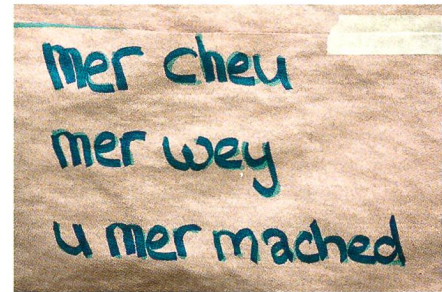 mer cheu
mer wey
u mer mached